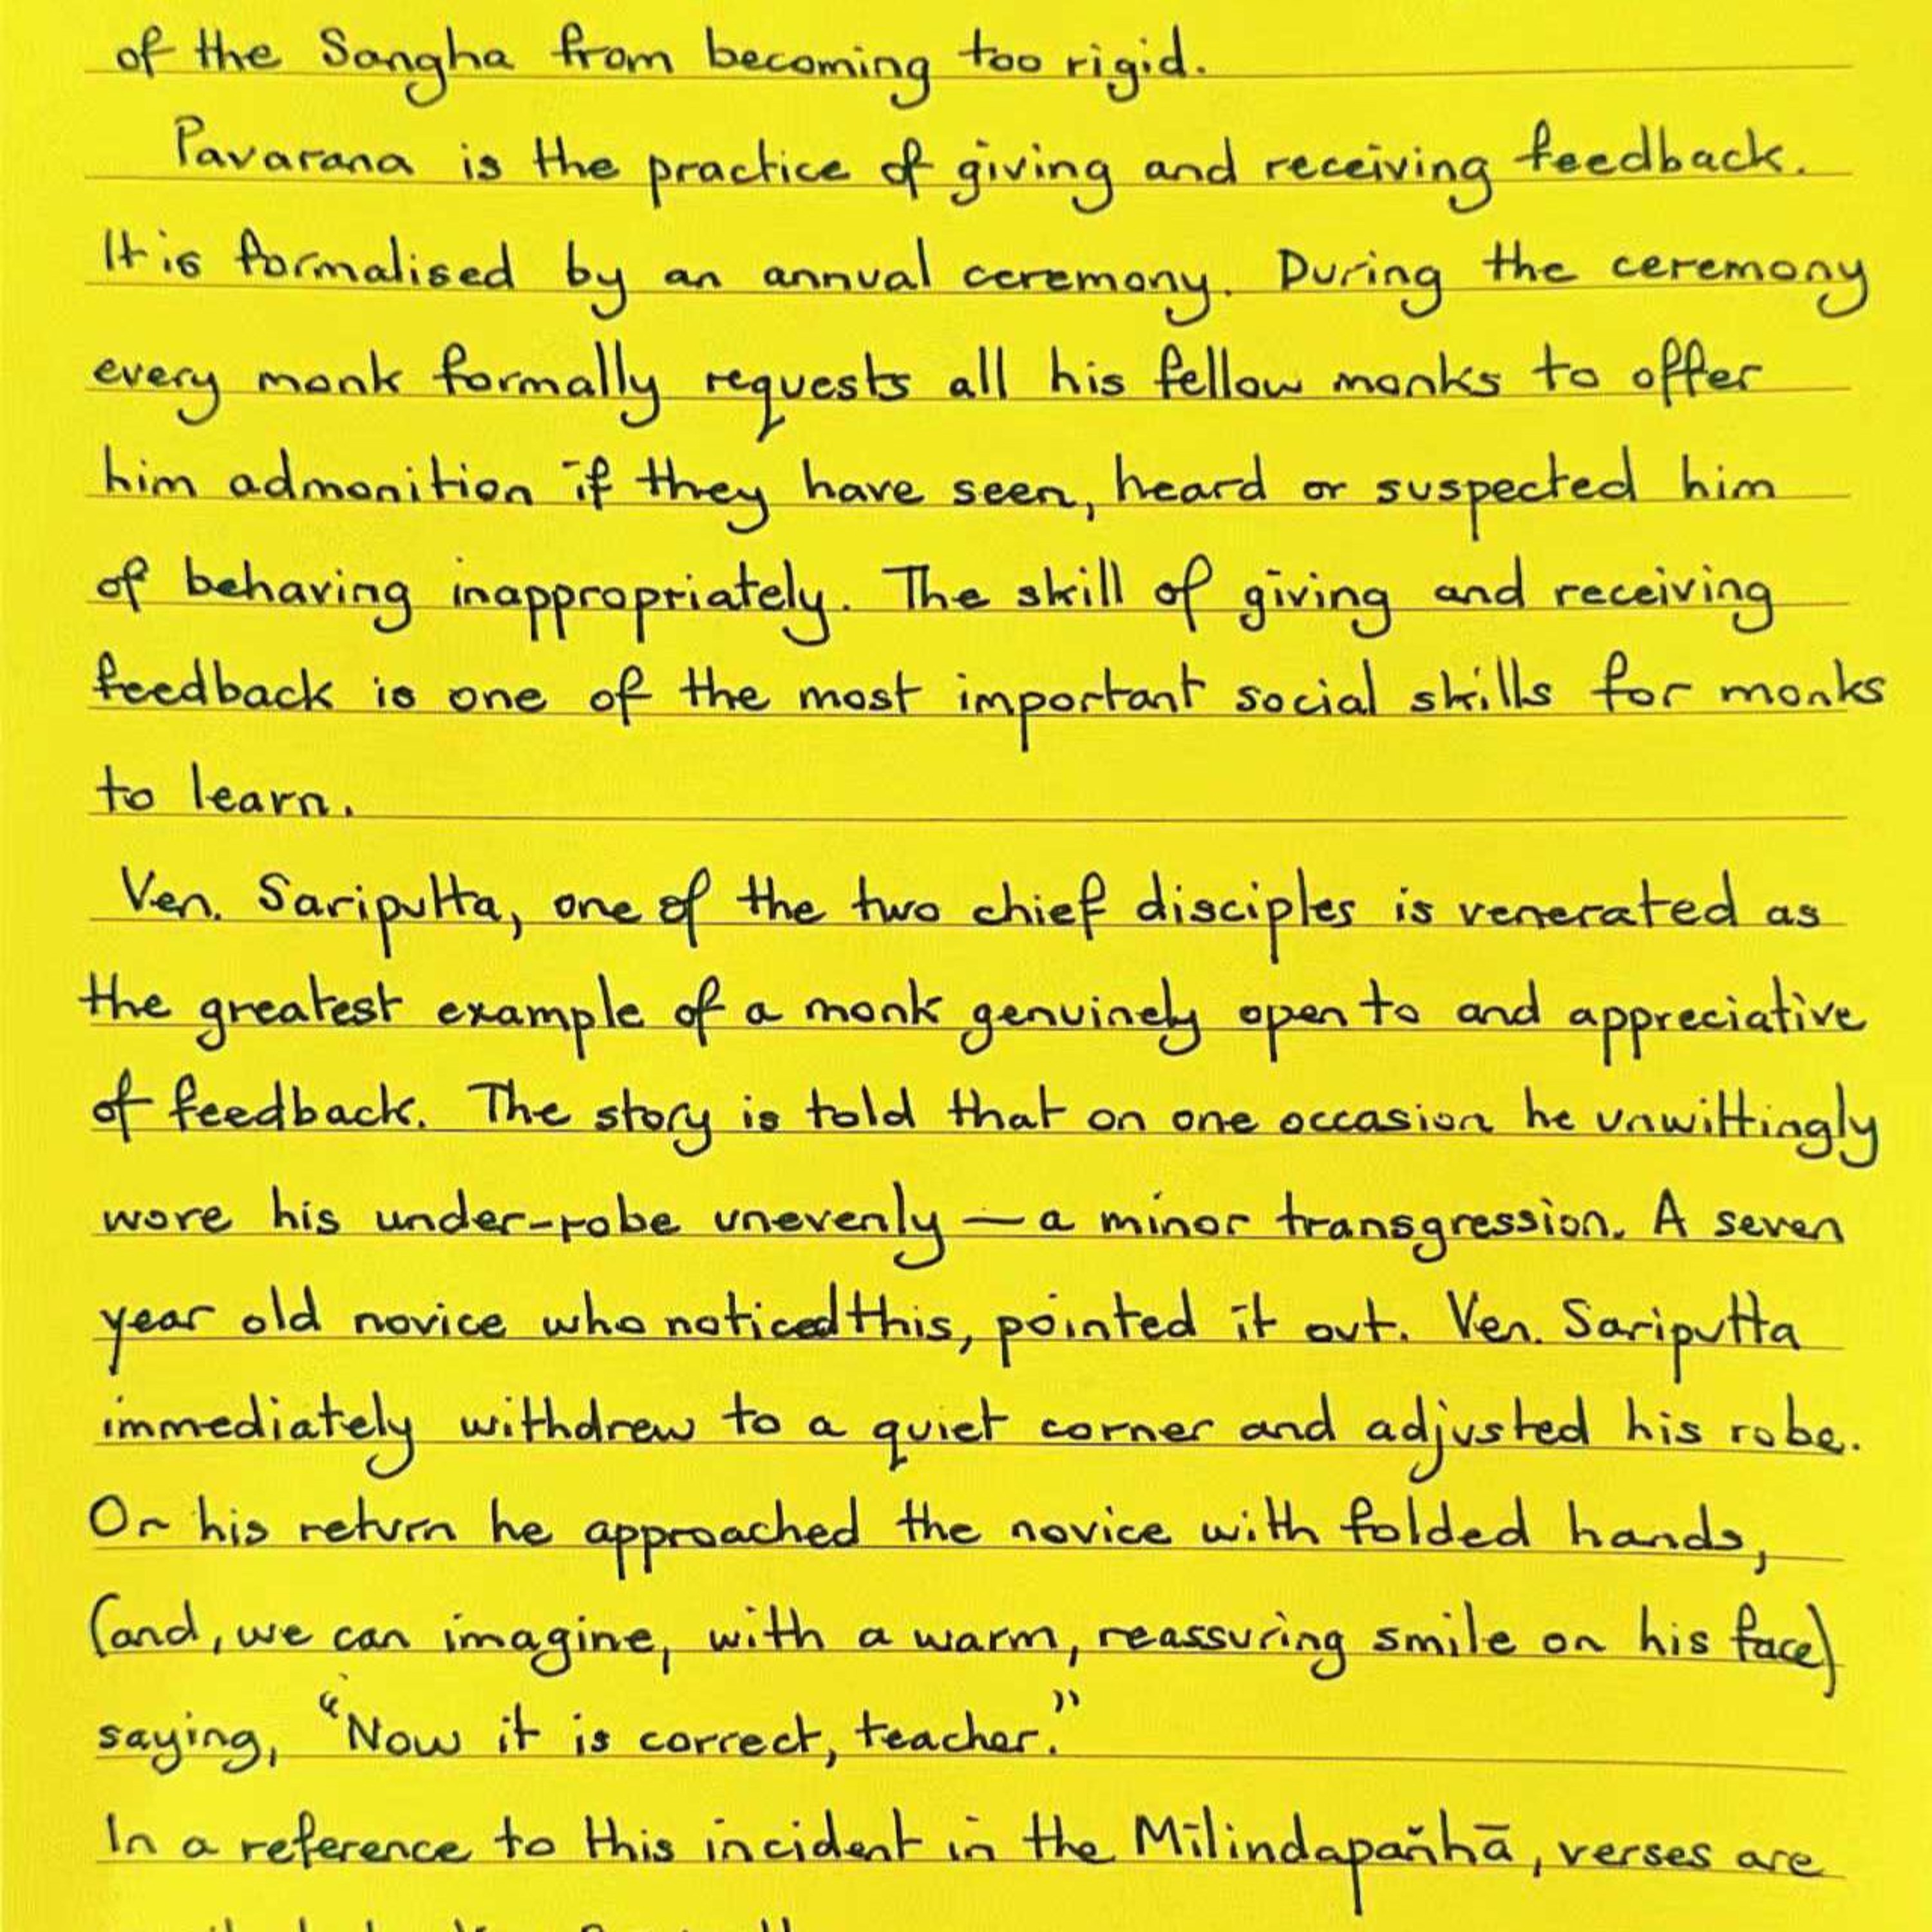 of the Sangha from becoming too rigid.
Pavarana is the practice of giving and receiving feedback.
It is formalised by an annual ceremony. During the ceremony
every monk formally requests all his fellow monks to offer
him admonition if they have seen, heard or suspected him
of behaving inappropriately. The skill of giving and receiving
feedback is one of the most important social skills for monks
to learn.
Ven. Sariputta, one of the two chief disciples is venerated as
the greatest example of a monk genuinely open to and appreciative
of feedback. The story is told that on one occasion he unwittingly
wore his under-robe unevenly — a minor transgression. A seven
year old novice who noticed this, pointed it out. Ven. Sariputta
immediately withdrew to a quiet corner and adjusted his robe.
On his return he approached the novice with folded hands,
(and, we can imagine, with a warm, reassuring smile on his face)
saying, "Now it is correct, teacher."
In a reference to this incident in the Milindapañhā, verses are